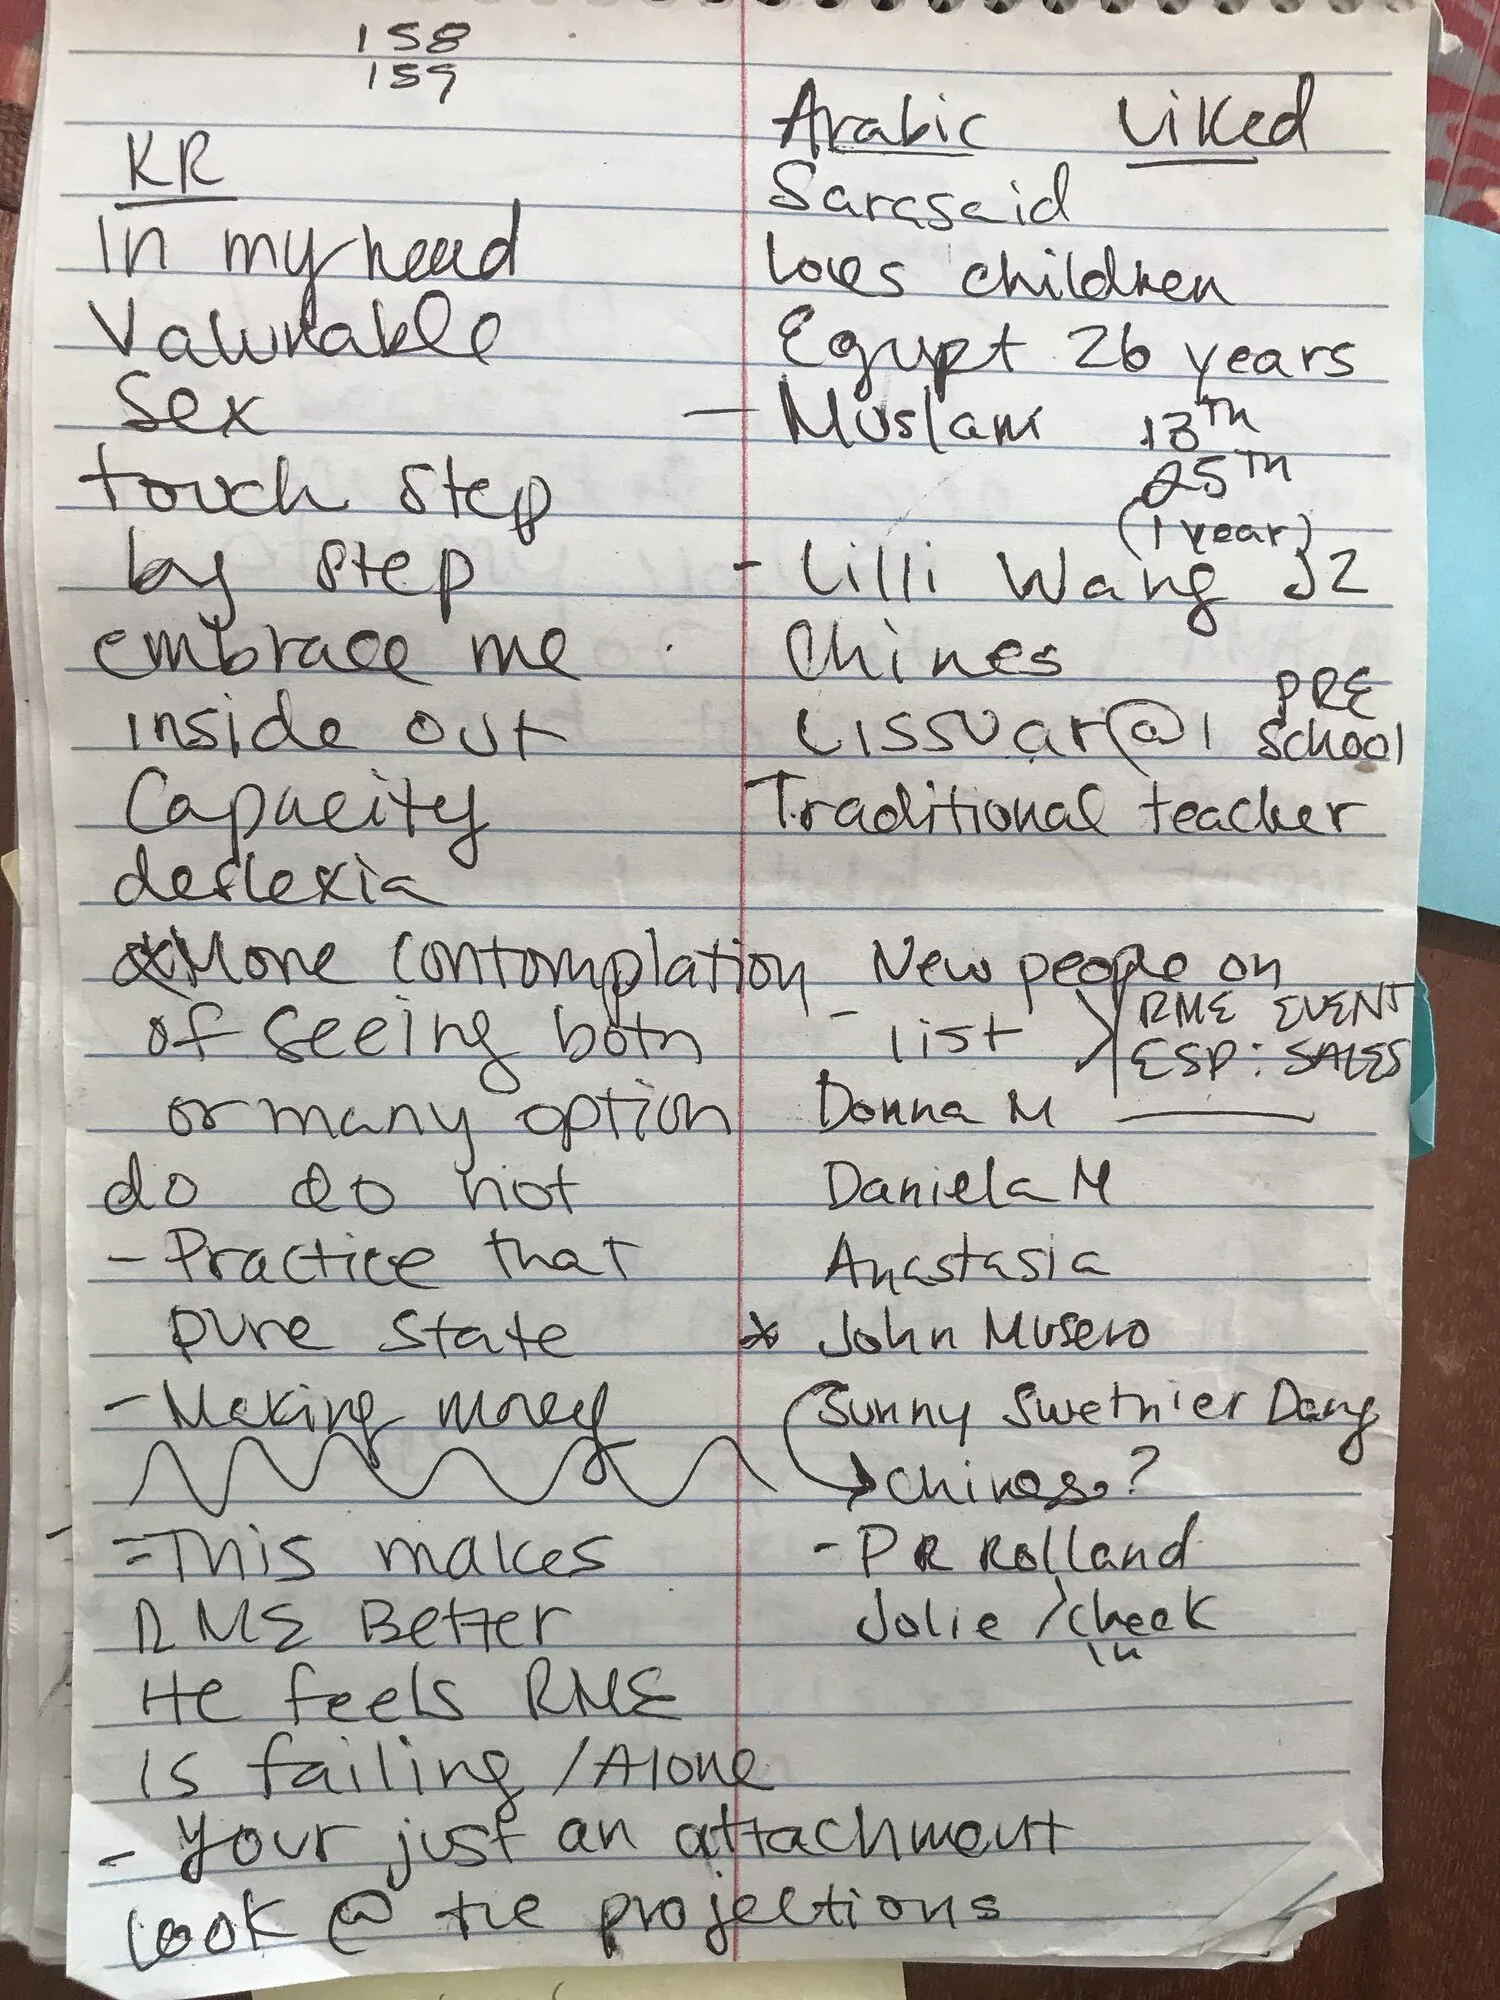 158
159
KR
In my head
Valunrable
Sex
touch step
by step
embrace me
inside out
Capacity
deslexia
More Contomplation
of seeing both
or many option
do do not
- Practice that
pure state
- Making money
= This makes
RME Better
He feels RME
Is failing / Alone
- Your just an attachment
look @ the projections
Arabic Liked
Sarasaid
loves children
Egupt 26 years
- Muslam 13th
25th
(1 year)
- Lilli Wang J2
Chines
PRE
Lissuar@1 School
Traditional teacher
New people on
- list > RME EVENT
ESP: SALES
Donna M
Daniela M
Anastasia
* John Musero
Sunny Swethier Dang
→ Chines?
- PR Rolland
Jolie / check
in